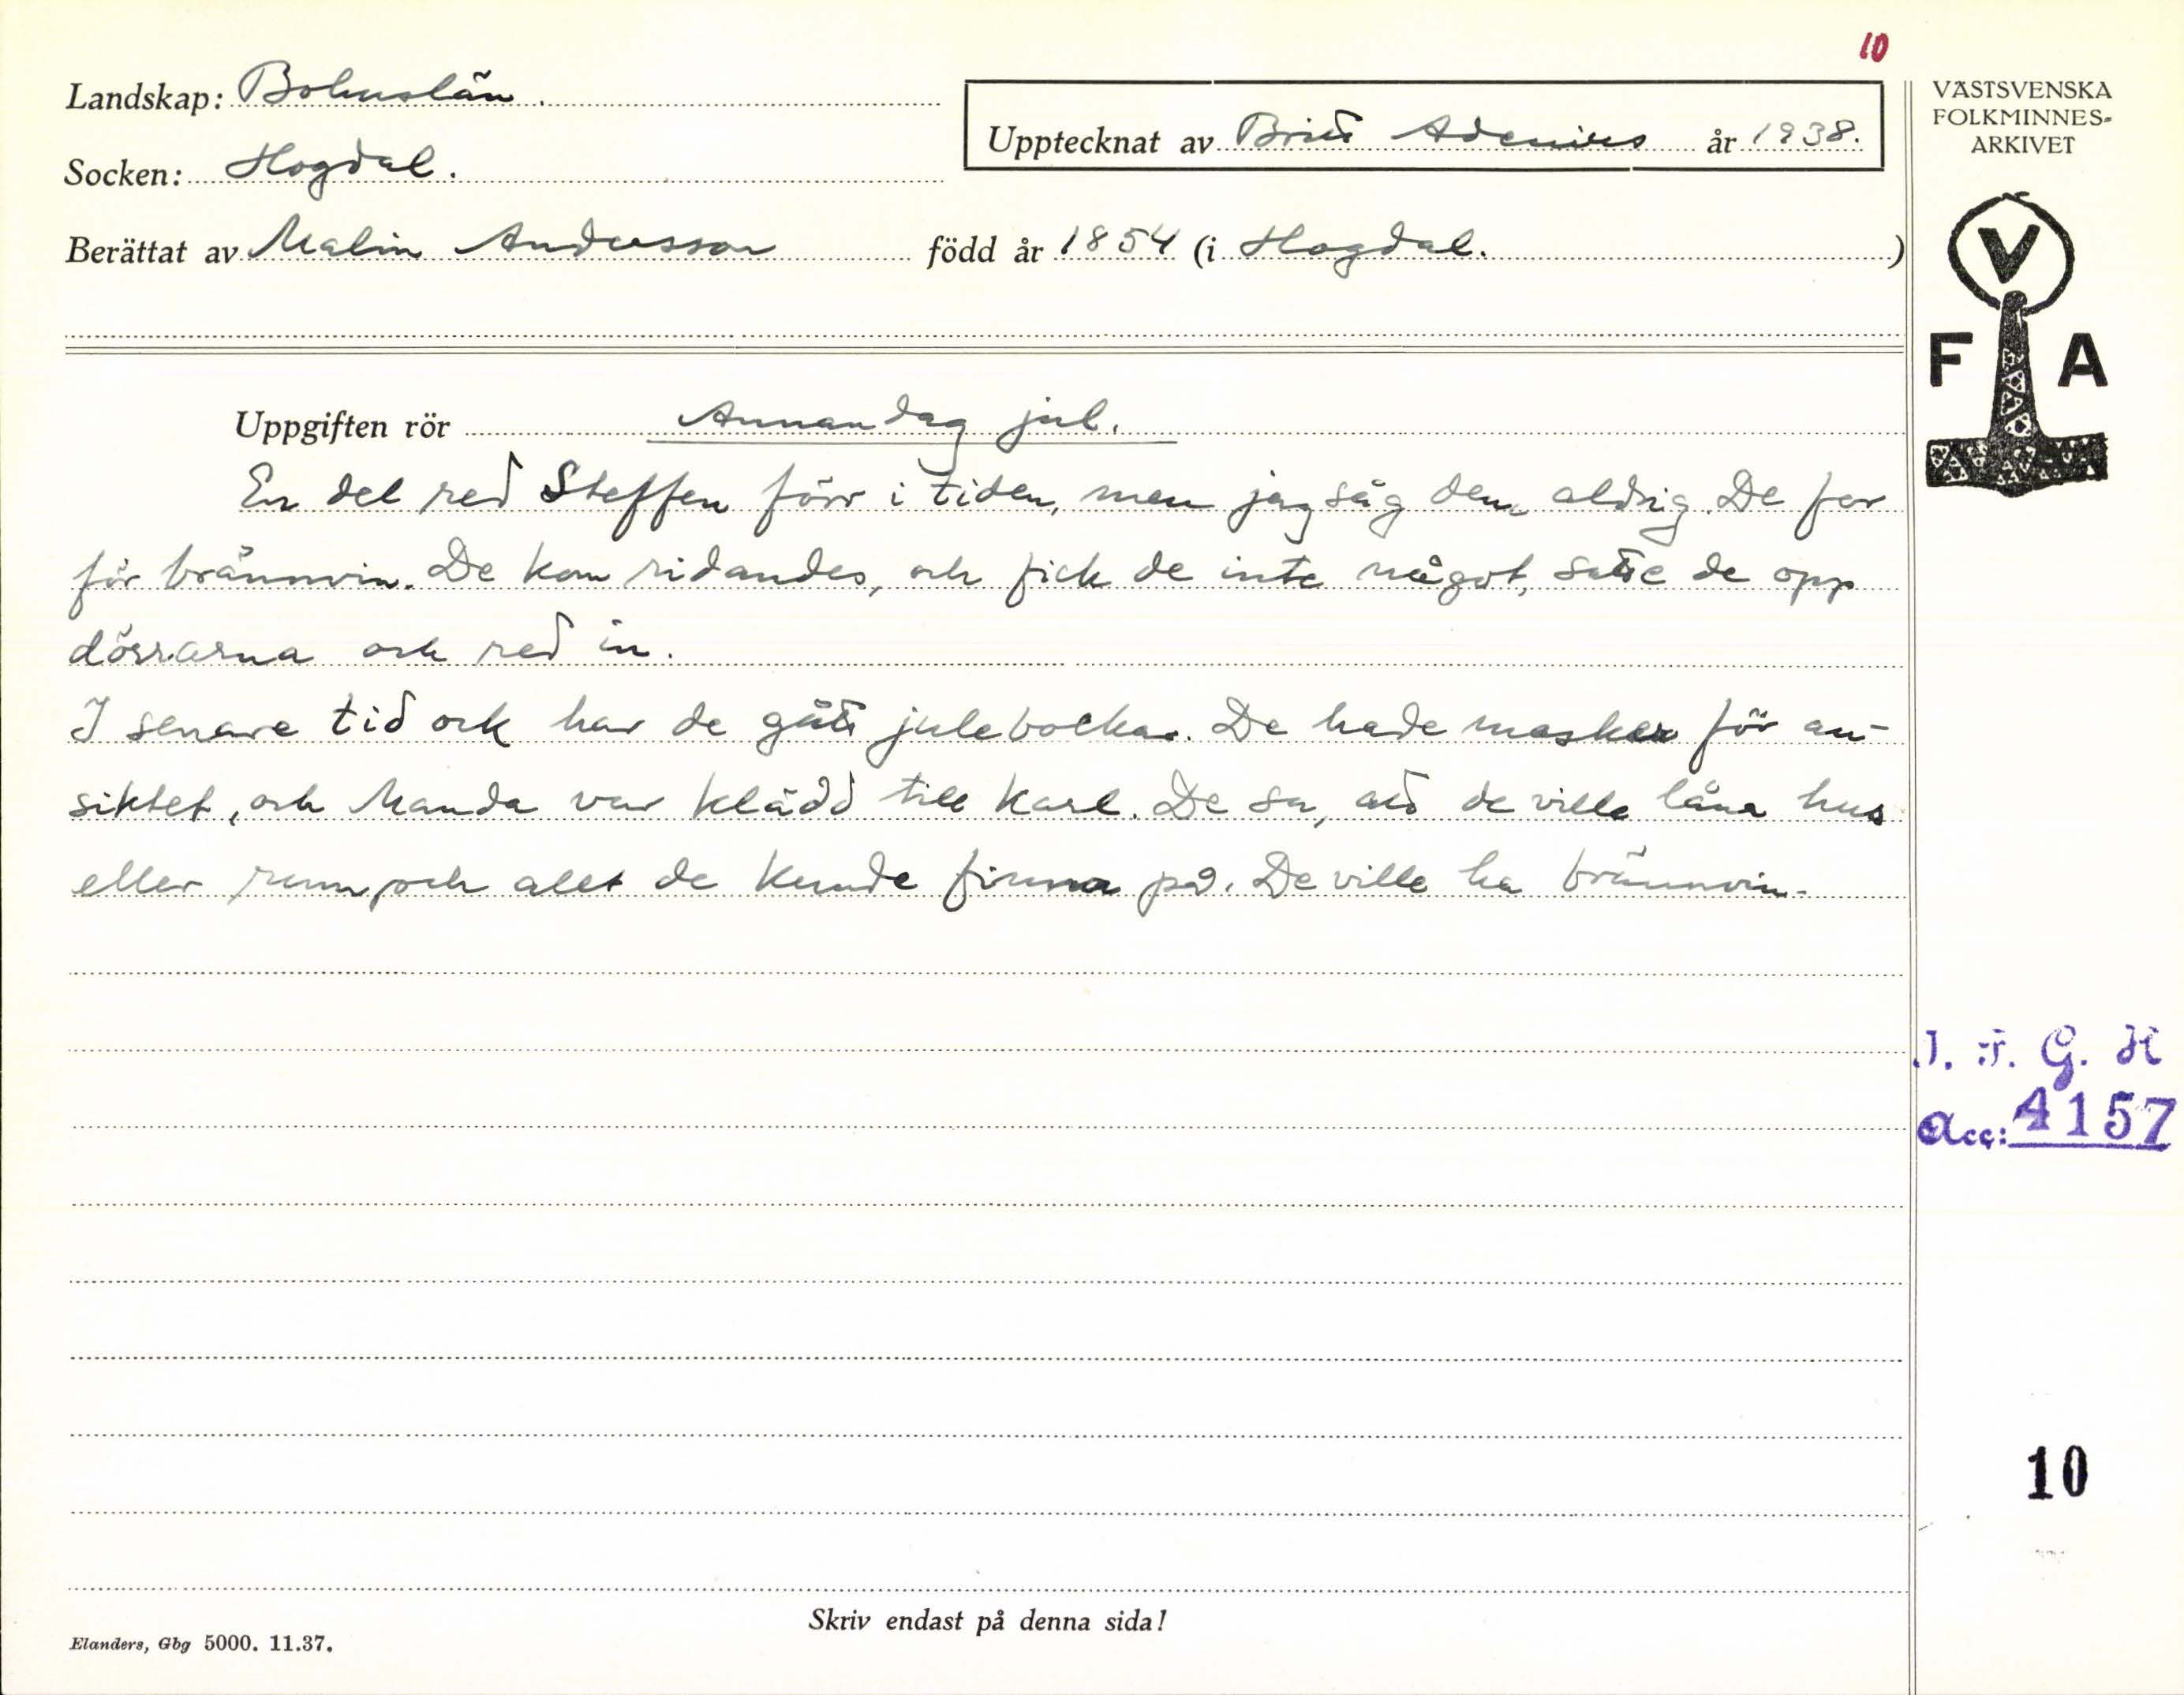 10
Landskap: Bohuslän.
Upptecknat av Britt Adenius år 1938.
Socken: Hogdal.
Berättat av Malin Andersson född år 1854 (i Hogdal.)
VÄSTSVENSKA
FOLKMINNES-
ARKIVET
V
F A
Uppgiften rör Annandag jul.
En del red Steffen förr i tiden, men jag såg dem aldrig. De for
för brännvin. De kom ridandes, och fick de inte något, satte de opp
dörrarna och red in.
I senare tid ock har de gått julebockar. De hade masker för an-
siktet, och Manda var klädd till karl. De sa, att de ville låna hus
eller rum, och allt de kunde finna på. De ville ha brännvin.
I. F. G. H
Acc: 4157
10
Skriv endast på denna sida!
Elanders, Gbg 5000. 11.37.